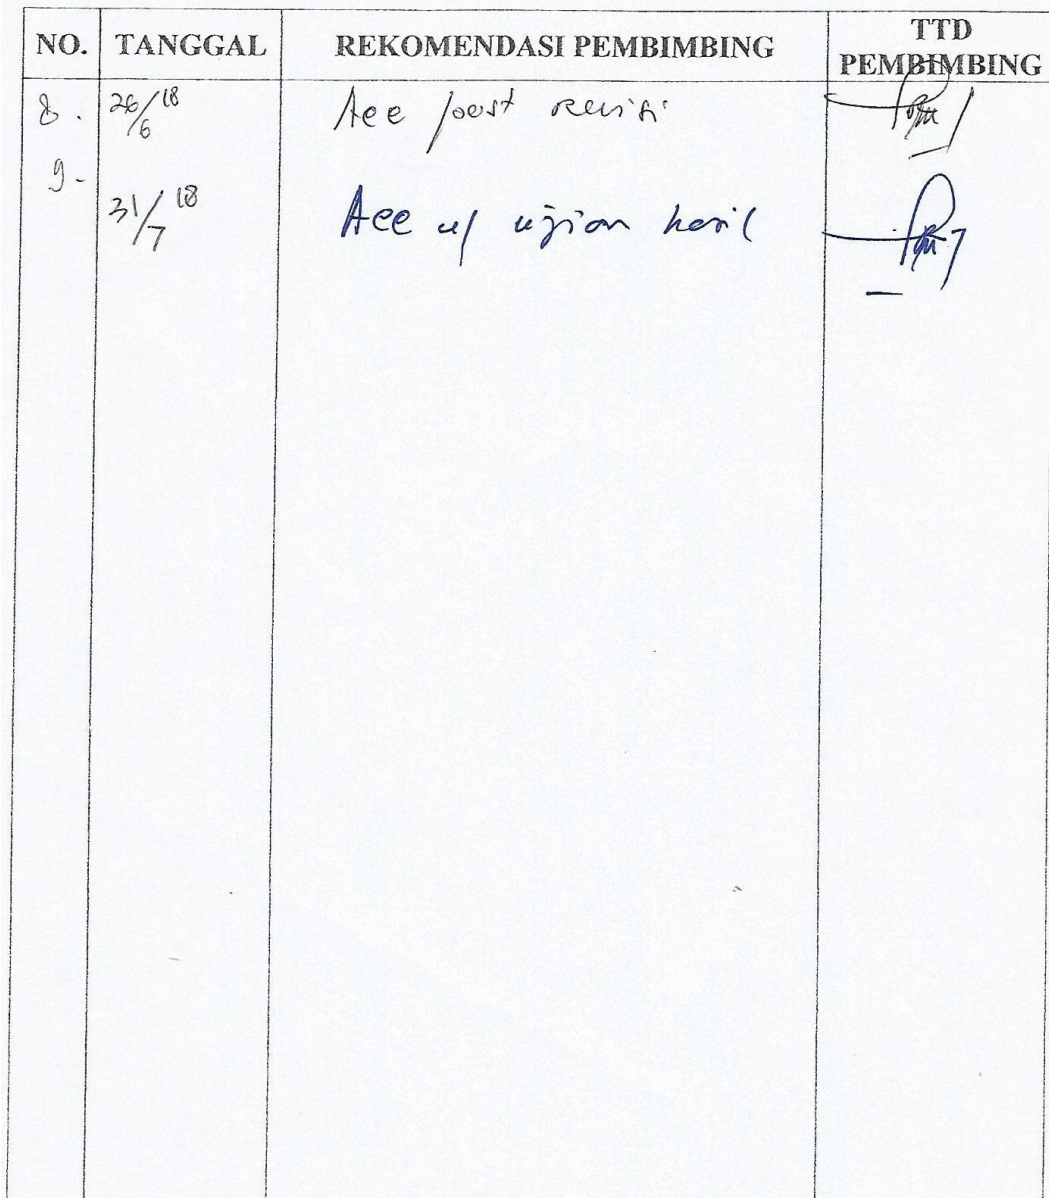 NO. TANGGAL REKOMENDASI PEMBIMBING TTD PEMBIMBING
8. 26/6 18 Acc post revisi
9.
31/7 18 Acc u/ ujian hasil